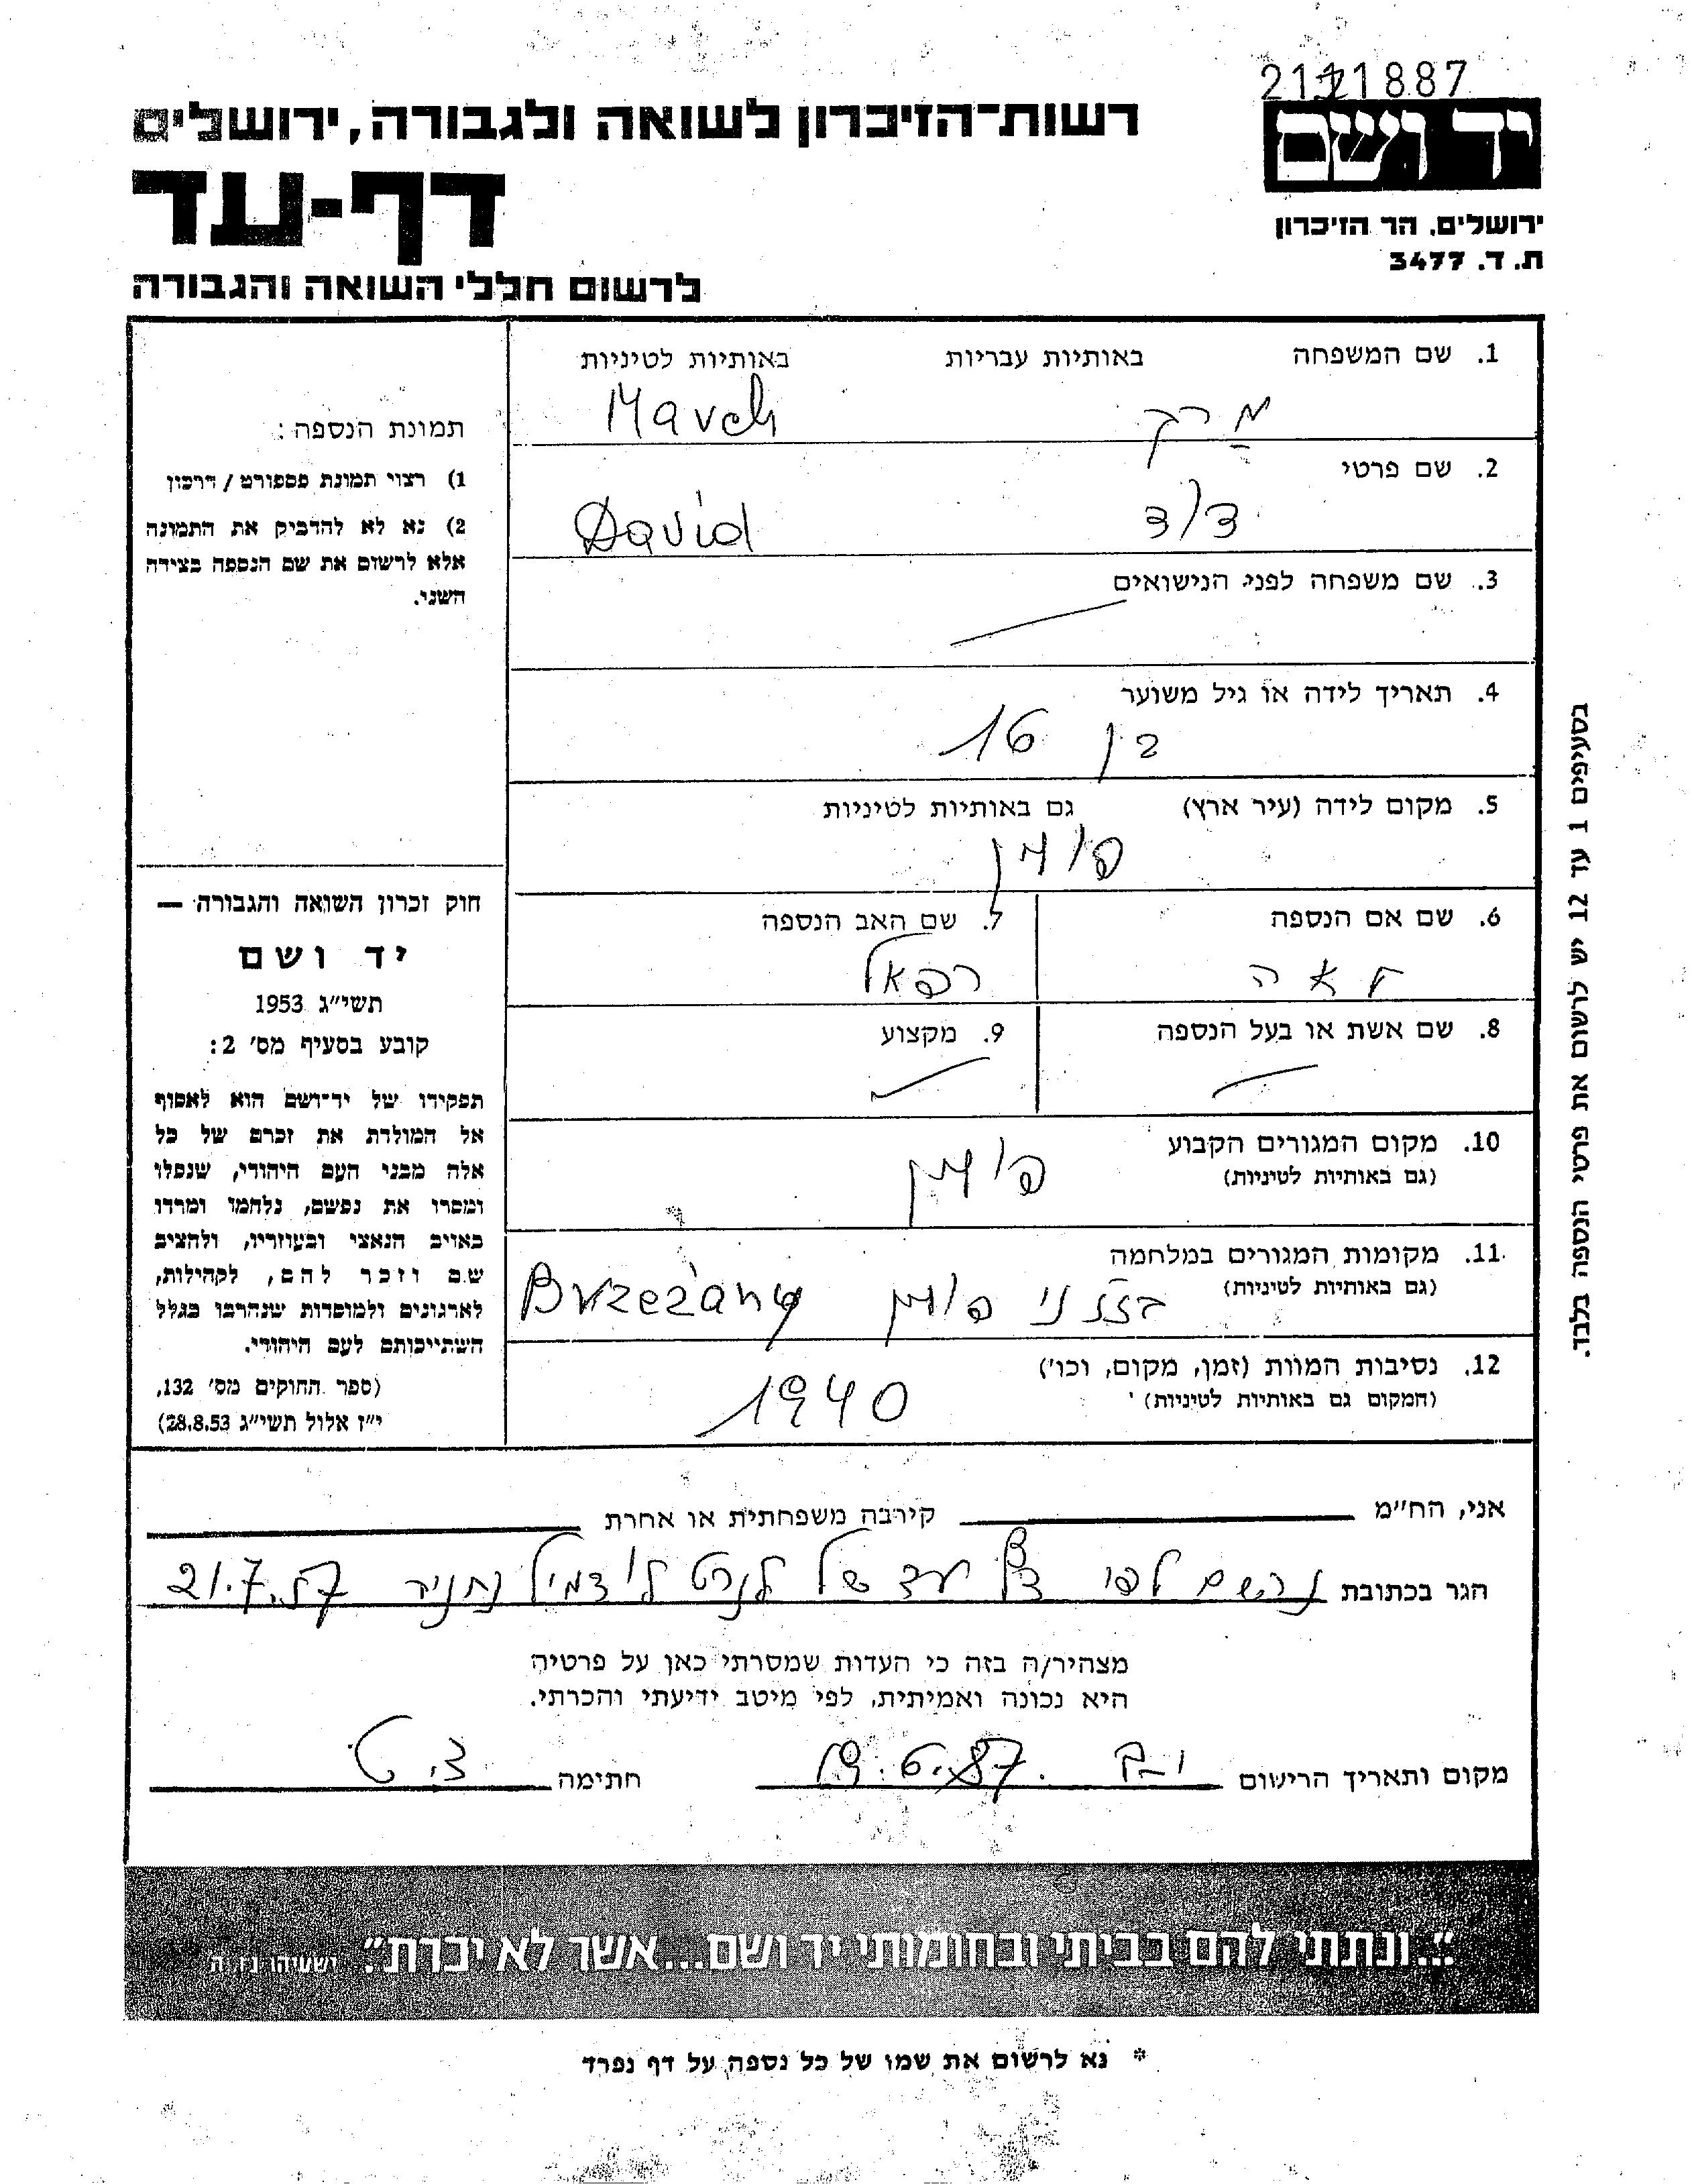 2111887
יד ושם
ירושלים, הר הזיכרון
ת.ד. 3477
רשות-הזיכרון לשואה ולגבורה, ירושלים
דף-עד
לרשום חללי השואה והגבורה
1. שם המשפחה באותיות עבריות באותיות לטיניות
מרך March
2. שם פרטי
דוד David
3. שם משפחה לפני הנישואים
4. תאריך לידה או גיל משוער
בן 16
5. מקום לידה (עיר ארץ) גם באותיות לטיניות
פולין
6. שם אם הנספה 7. שם האב הנספה
לאה רפאל
8. שם אשת או בעל הנספה 9. מקצוע
10. מקום המגורים הקבוע
(גם באותיות לטיניות)
פולין
11. מקומות המגורים במלחמה
(גם באותיות לטיניות)
פולין Brzeżany
12. נסיבות המוות (זמן, מקום, וכו')
(המקום גם באותיות לטיניות)
1940
תמונת הנספה:
1) רצוי תמונת פספורט / דרכון
2) נא לא להדביק את התמונה
אלא לרשום את שם הנספה בצידה
השני.
חוק זכרון השואה והגבורה —
יד ושם
תשי"ג 1953
קובע בסעיף מס' 2:
תפקידו של יד-ושם הוא לאסוף
אל המולדת את זכרם של כל
אלה מבני העם היהודי, שנפלו
ומסרו את נפשם, נלחמו ומרדו
באויב הנאצי ובעוזריו, ולהציב
שם וזכר להם, לקהילות,
לארגונים ולמוסדות שנחרבו בגלל
השתייכותם לעם היהודי.
(ספר החוקים מס' 132,
י"ז אלול תשי"ג 28.8.53)
בסעיפים 1 עד 12 יש לרשום את פרטי הנספה בלבד.
אני, הח"מ קירבה משפחתית או אחרת
הגר בכתובת נרשם לפי דף עד של 21.7.57
מצהיר/ה בזה כי העדות שמסרתי כאן על פרטיה
היא נכונה ואמיתית, לפי מיטב ידיעתי והכרתי.
מקום ותאריך הרישום 19.6.87 חתימה
"...ונתתי להם בביתי ובחומותי יד ושם...אשר לא יכרת". ישעיהו נו, ה
* נא לרשום את שמו של כל נספה על דף נפרד